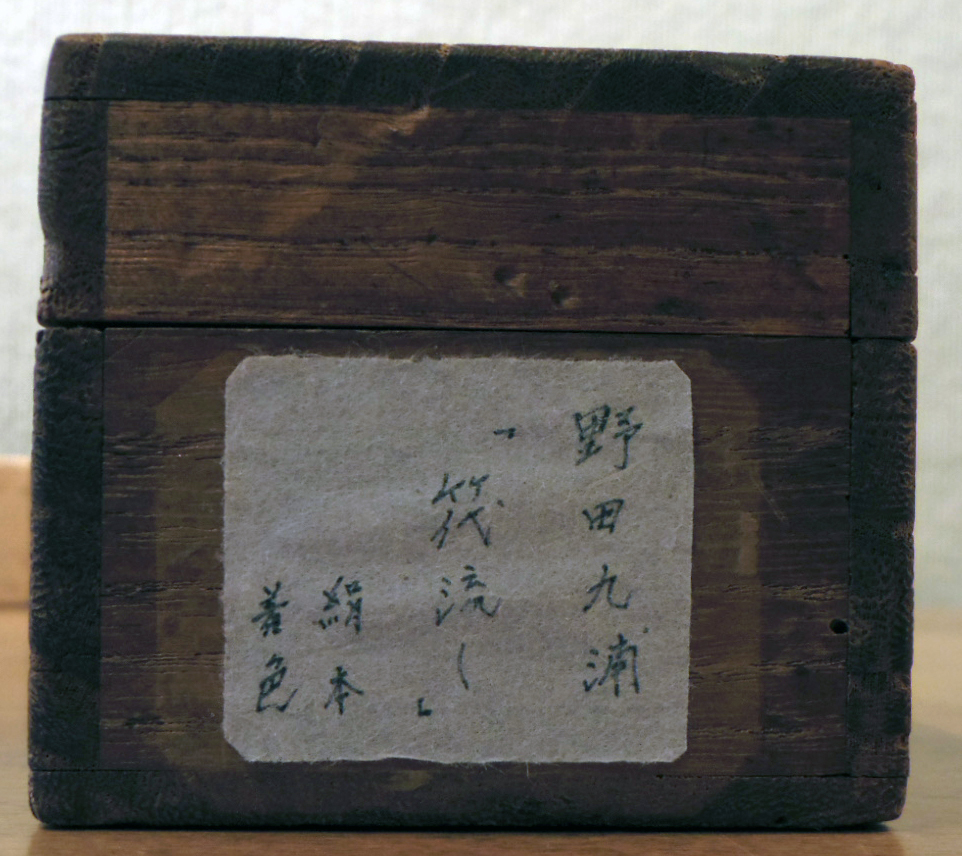 野田九浦
「筏流し」
絹本
着色